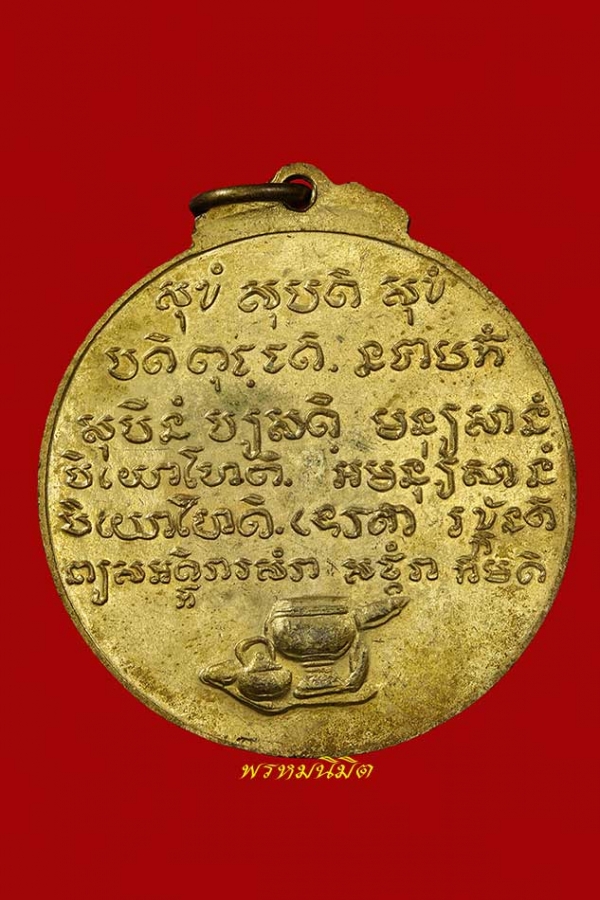 សុខំ សុបតិ សុខំ
បដិពុជ្ឈតិ. នបាបកំ
សុបិនំ បស្សតិ មនុស្សានំ
បិយោហោតិ. អមនុស្សានំ
បិយោហោតិ. ទេវតា រក្ខន្តិ
សត្ថំវា កមតិ
พรหมนิมิต